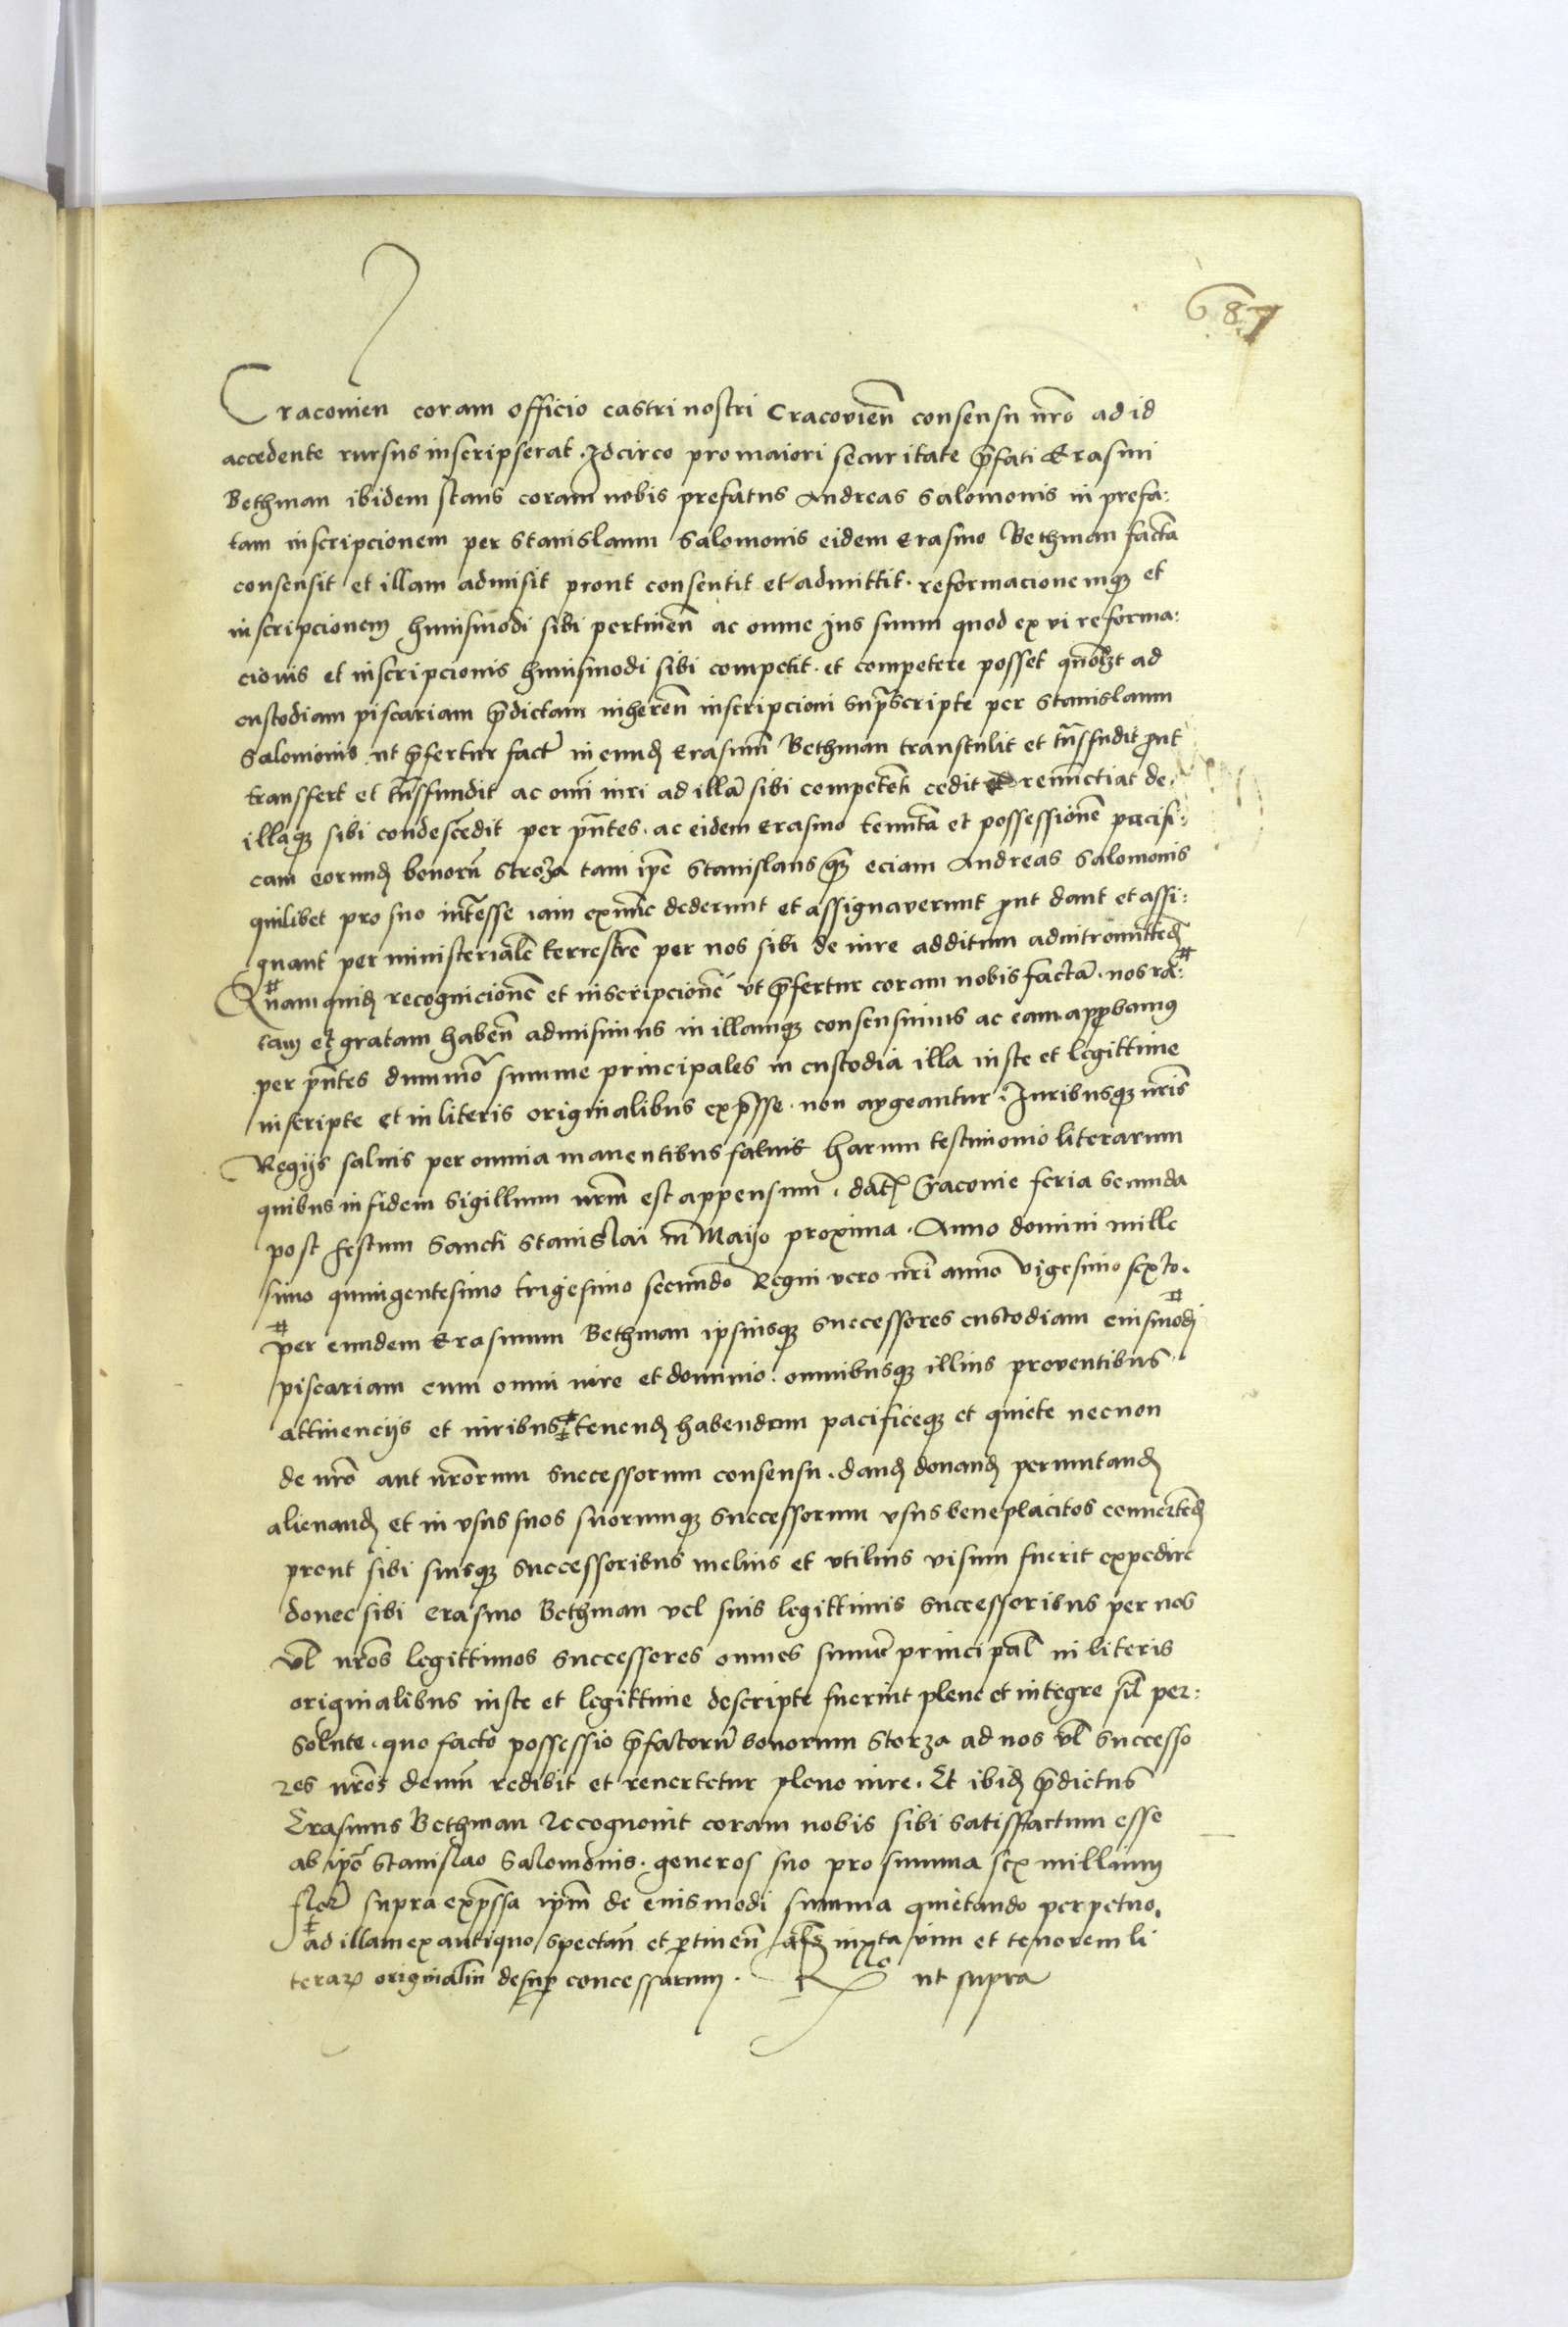 687
Craconien coram officio castri nostri Cracovien̄ consensu n̄ro ad id
accedente rursus inscripserat. Idcirco pro maiori securitate p̄fati Erasmi
Bethman ibidem stans coram nobis prefatus Andreas Salomonis in prefa:
tam inscripcionem per Stanislaum Salomonis eidem Erasmo Bethman factā
consensit et illam admisit prout consentit et admittit. reformacionemqꝫ et
inscripcionem huiusmodi sibi pertinen̄ ac omne jus suum quod ex vi reforma:
cionis et inscripcionis huiusmodi sibi competit. et competere posset quōlꝫt ad
custodiam piscariam p̄dictam inheren̄ inscripcioni sup̄scripte per Stanislaum
Salomonis ut p̄fertur fact̄ in eund̄ Erasmū Bethman transtulit et trāsfudit ꝓut
transfert et trāsfundit ac om̄i iuri ad illā sibi competēti cedit et renūctiat de
illaqꝫ sibi condescēdit per pn̄tes. ac eidem Erasmo tenutā et possessionē pacifi:
cam eorund̄ bonorū Stroza tam ip̄e Stanislaus qꝫ eciam Andreas Salomonis
quilibet pro suo int̄esse iam exnūc dederunt et assignaverunt ꝓut dant et assi:
gnant per ministerialē terrestrē per nos sibi de iure additum ad intromittēd̄
# Quamquid̄ recognicionē et inscripcionē vt p̄fertur coram nobis factā. nos ra: #
tam et gratam haben̄ admisimus in illamqꝫ consensimus ac eam app̄bamus
per pn̄tes dummō summe principales in custodia illa iuste et legittime
inscripte et in literis originalibus exp̄sse. non avgeantur. Iuribusqꝫ n̄ris
Regijs salvis per omnia manentibus salvis harum testimonio literarum
quibus in fidem Sigillum n̄rm̄ est appensum. dat̄ Craconie feria secunda
post festum Sancti Stanislai in Maijo proxima. Anno domini mille
simo quingentesimo trigesimo secundo Regni vero n̄ri anno vigesimo sexto.
# per eundem Erasmum Bethman ipsiusqꝫ successores custodiam eiusmodi #
piscariam cum omni iure et dominio. omnibusqꝫ illius proventibus
attinencijs et iuribus ‡ tenend̄ habendum pacificeqꝫ et quiete necnon
de n̄ro aut n̄rorum successorum consensu. dand̄ donand̄ permutand̄
alienand̄ et in vsus suos suorumqꝫ successorum vsus beneplacitos convertēd̄
prout sibi suisqꝫ successoribus melius et vtilius visum fuerit expedire
donec sibi Erasmo Bethman vel suis legittimis successoribus per nos
vl̄ n̄ros legittimos successores omnes sum̄e principal̄ in literis
originalibus iuste et legittime descripte fuerint plene et integre sil̄ per:
solute. quo facto possessio p̄fatorū bonorum Storza ad nos vl̄ successo
res n̄ros demū redibit et revertetur pleno iure. Et ibid̄ p̄dictus
Erasmus Bethman recognovit coram nobis sibi satisfactum esse
ab ip̄o Stanislao Salomonis. generos suo pro summa sex millium
flor̄ supra exp̄ssa ip̄m de eiusmodi summa quietando perpetuo.
‡ ad illam ex antiquo spectan̄ et p̄tinen̄ als iuxta vim et tenorem li
terarꝫ originaliū desup̄ concessarum. Rl͞o ut supra